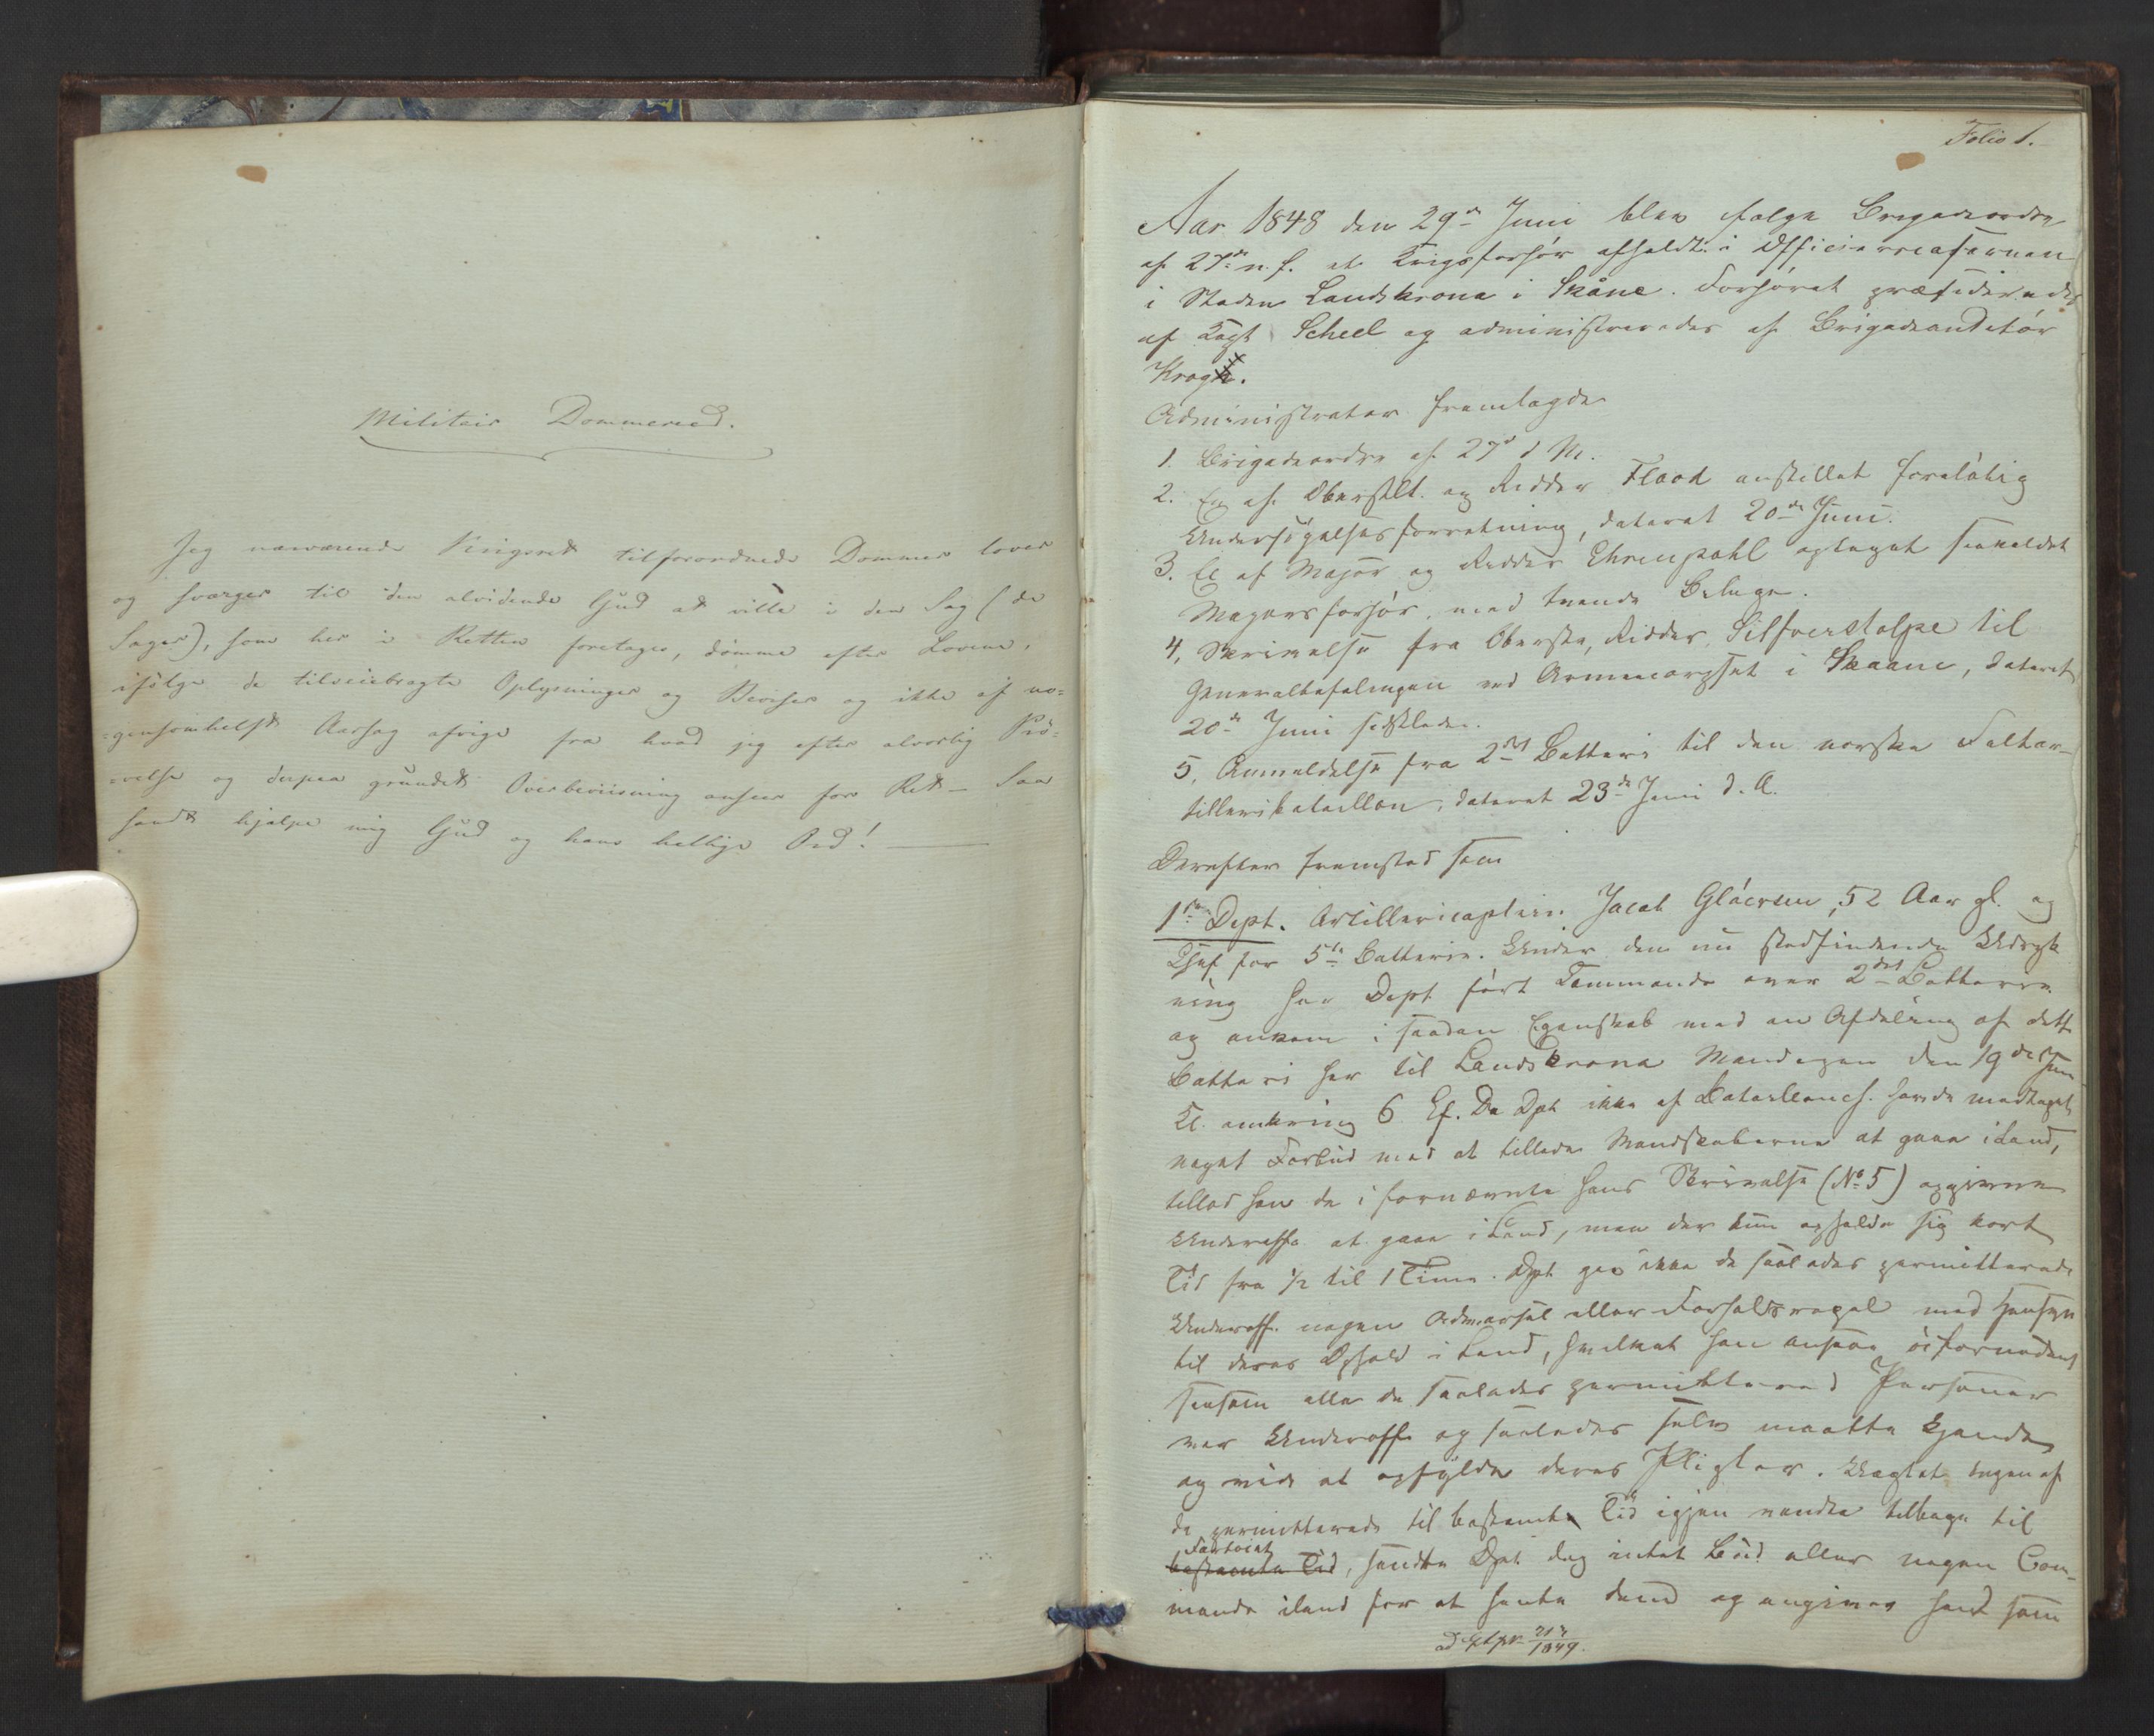 Militair Dommereed.
Jeg nærværende Krigsret tilforordnede Dommer lover
og sværger til den alvidende Gud at ville i den Sag (de
Sager), som her i Retten foretages, dömme efter Lovene,
ifölge de tilveiebragte Oplysninger og Beviser og ikke af no=
=gensomhelst Aarsag afvige fra hvad jeg efter alvorlig Prö=
=velse og derpaa grundet Overbeviisning anseer for Ret – Saa
sandt hjælpe mig Gud og hans hellige Ord! —
Folio 1.
Aar 1848 den 29de Juni blev ifølge Brigadeordre
af 27de n. f. et Krigsforhör afholdt i Officierscasernen
i Staden Landskrona i Skåne. Forhöret præsideredes
af Capt Scheel og administreredes af Brigadeauditör
Krog.
Administrator fremlagde
1. Brigadeordre af 27de d M.
2. En af Oberstlt. og Ridder Flood anstillet forelöbig
Undersögelsesforretning, dateret 20de Juni.
3. Et af Major og Ridder Ehrenpohl optaget saakaldet
Majorsforhör, med tvende Bilage.
4, Skrivelse fra Oberste, Ridder, Silfverstolpe til
Generalbefalingen ved Armeecorpset i Skaane, dateret
20de Juni sidstleden.
5, Anmeldelse fra 2det Batteri til den norske Feltar-
tilleribataillon, dateret 23de Juni d. A.
Derefter fremstod som
1ste Dept. Artillericaptein Jacob Glöersen, 52 Aar gl. og
Chef for 5te Batterie. Under den nu stedfindende Udryk
ning har Dept fört Commando over 2det Batterie
og ankom i saadan Egenskab med en Afdeling af dette
Batteri her til Landskrona Mandagen den 19de Juni
Kl. omkring 6 Ef. Da Dpt ikke af Bataillonch. havde modtaget
noget Forbud mod at tillade Mandskaberne at gaae iland,
tillod han de i fornævnte hans Skrivelse (No 5) opgivne
Underoff. at gaae iLand, men der kun opholde sig kort
Tid fra 1/2 til 1 Time. Dpt gav ikke de saaledes permitterede
Underoff. nogen Advarsel eller Forholdsregel med Hensyn
til deres Ophold i Land, hvilket han ansaae ufornödent
saasom alle de saaledes permitterede Personer
var Underoff. og saaledes selv maatte kjende
og vide at opfylde deres Pligter. Uagtet Ingen af
de permitterede til bestemte Tid igjen vendte tilbage til
Fartöiet
bestemte Tid, sendte Dpt dog intet Bud eller nogen Com-
mando iland for at hente dem og angiver han som
1849.